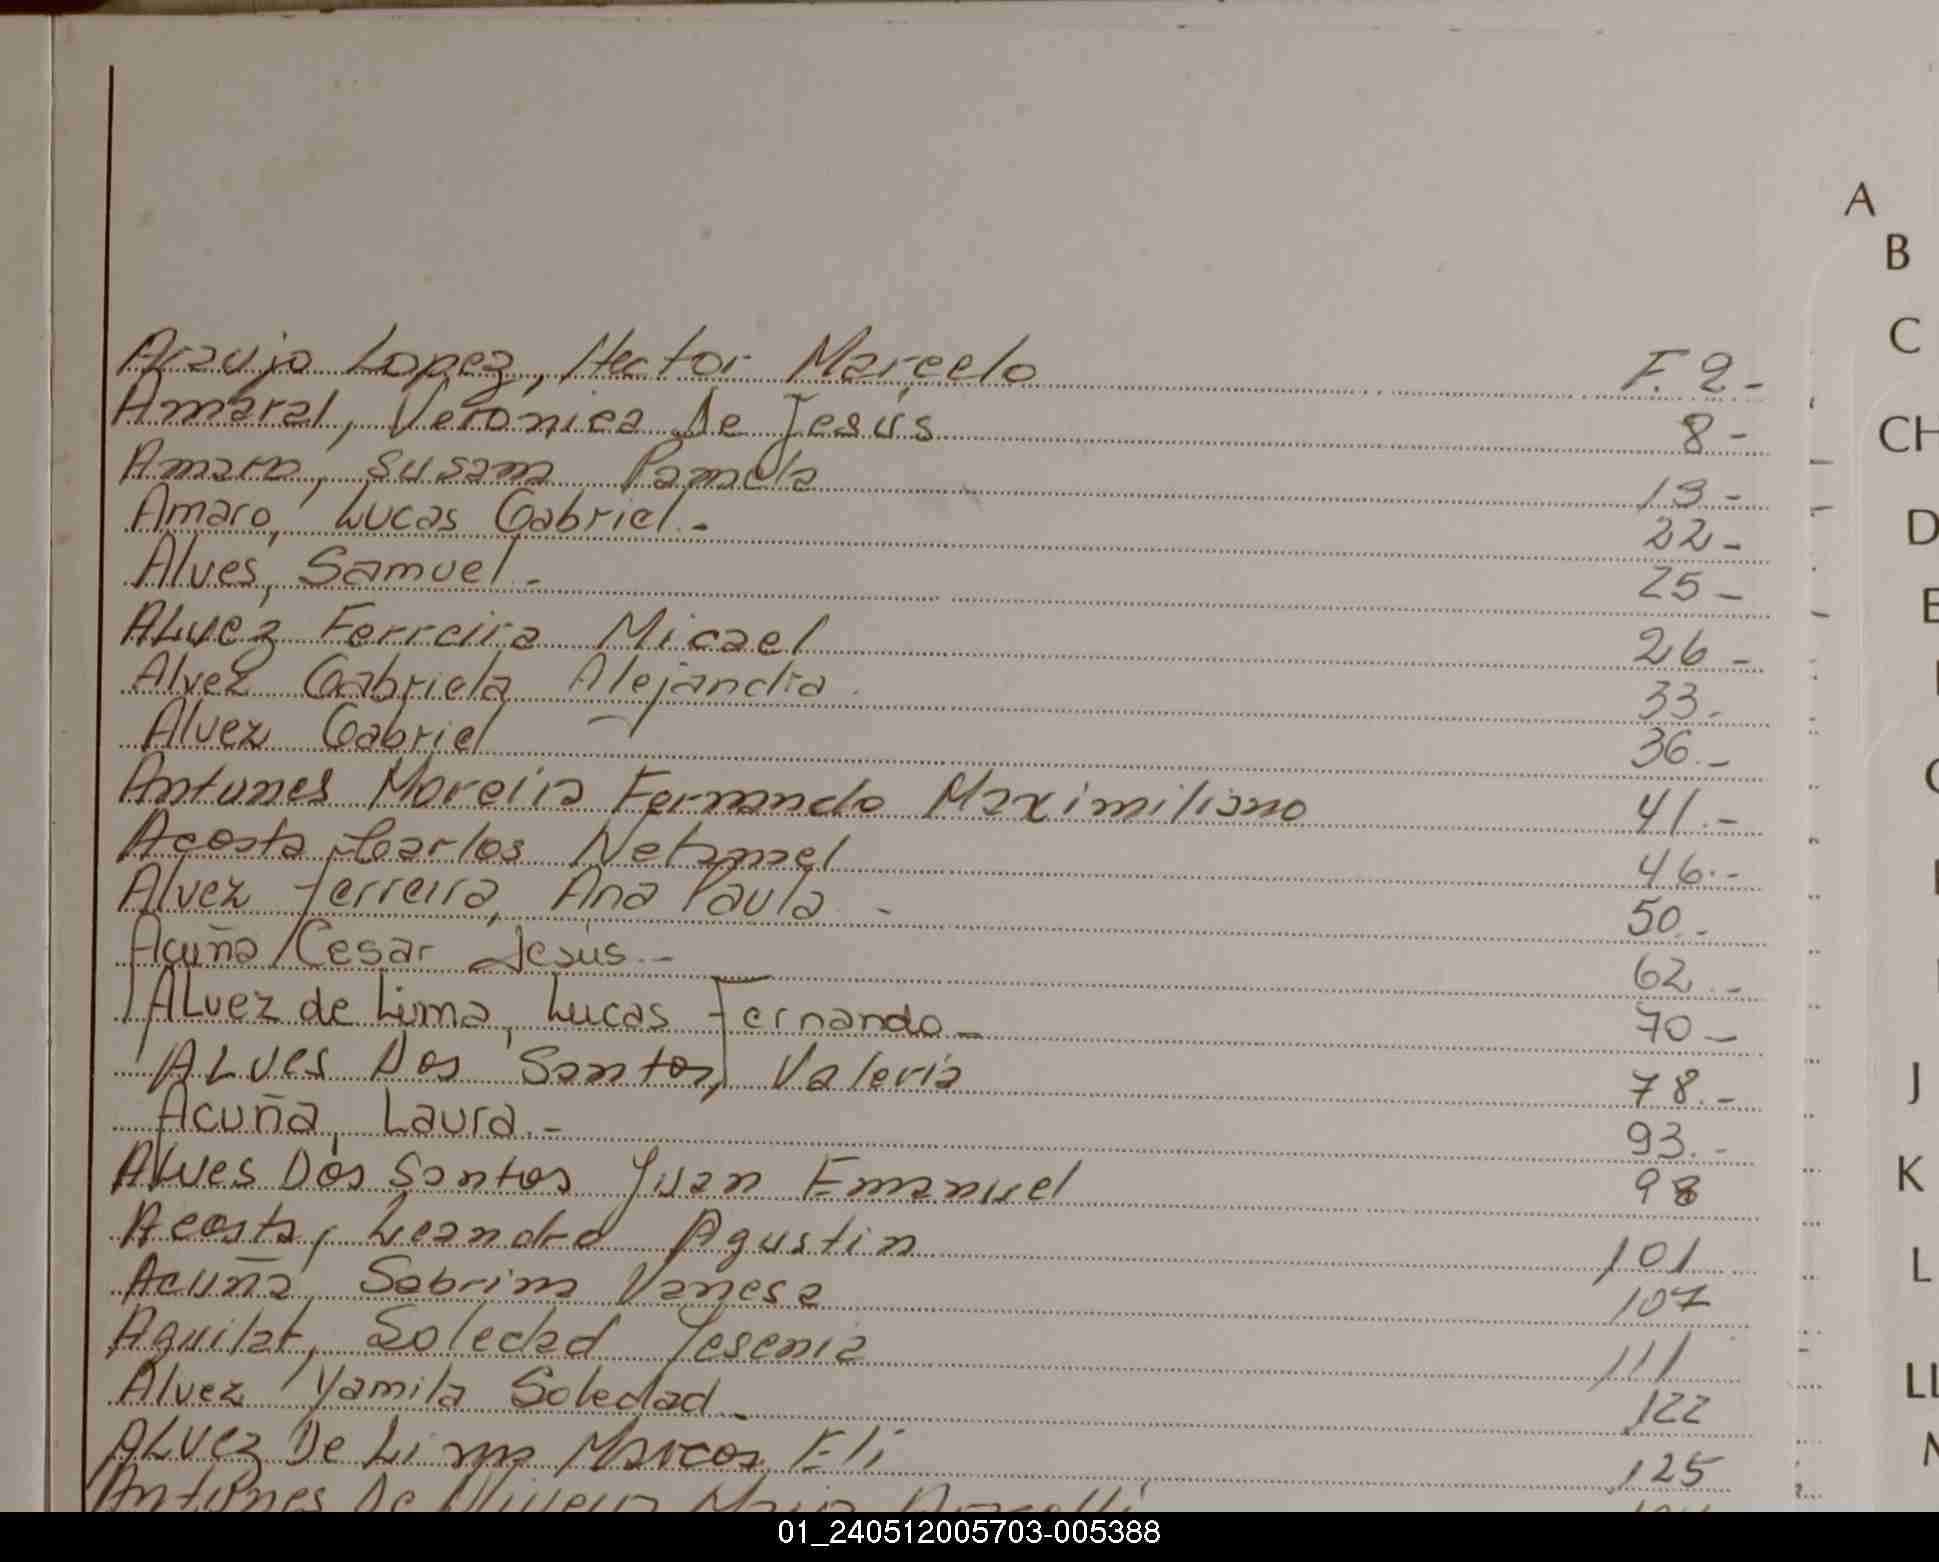 Araujo Lopez, Hector Marcelo F. 2-
Amaral, Veronica De Jesús 8-
Amaro, Susana Pamela 13.-
Amaro, Lucas Gabriel.- 22-
Alves, Samuel.- 25-
ALvez Ferreira Micael 26-
Alvez Gabriela Alejandra. 33.-
Alvez Gabriel 36.-
Antunes Moreira Fernando Maximiliano 41.-
Acosta, Carlos Natanael 46.-
Alvez Ferreira, Ana Paula.- 50.-
Acuña, Cesar Jesús.- 62.-
ALvez de Lima, Lucas Fernando- 70-
ALves Dos Santos, Valeria 78.-
Acuña, Laura.- 93.-
ALves Dos Santos Juan Emanuel 98
Acosta, Leandro Agustin 101
Acuña, Sabrina Vanesa 107
Aguilar, Soledad Yesenia 111
Alvez, Yamila Soledad.- 122
ALvez De Lima Marcos Eli 125
Antunes De
A
B
C
CH
D
J
K
L
01_240512005703-005388